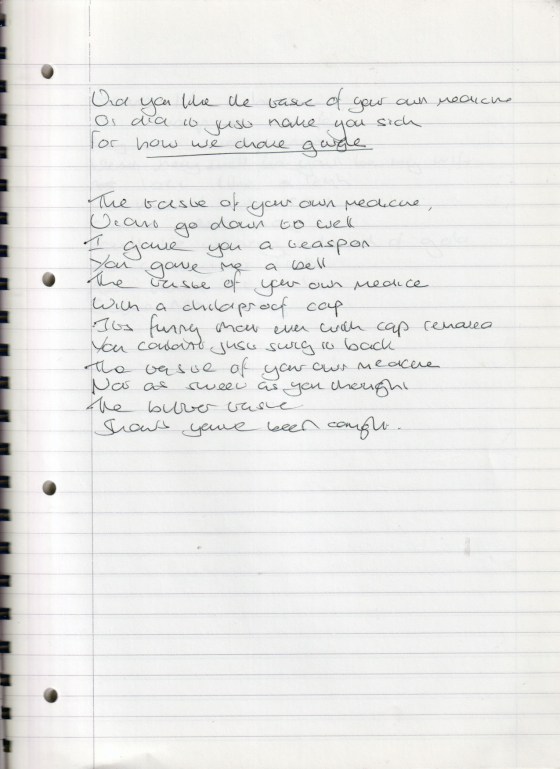 Did you like the taste of your own medicine
Or did it just make you sick
For how we change
The taste of your own medicine,
Didnt go down to well
I gave you a teaspon
You gave me a bell
The taste of your own medice
With a childproof cap
Its funny that even with cap removed
You couldn't just swig it back
The taste of your own medicine
Not as sweet as you thought
The bitter taste
Shows youve been caught.